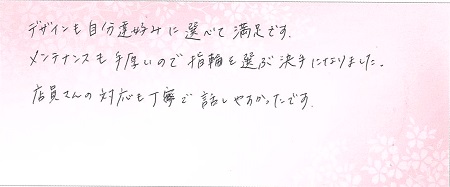 デザインも自分達好みに選べて満足です。
メンテナンスも手厚いので指輪を選ぶ決手になりました。
店員さんの対応も丁寧で話しやすかったです.